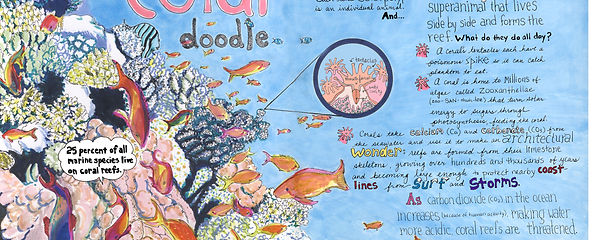 Coral
doodle
is an individual animal!
And...
superanimal that lives
side by side and forms the
reef. What do they do all day?
A coral's tentacles each have a
poisonous spike so it can catch
plankton to eat.
A coral is home to Millions of
algae called Zooxanthellae
(zoo-SAN-thuh-lee) that turn solar
energy to sugars through
photosynthesis, feeding the coral.
tentacles
25 percent of all
marine species live
on coral reefs.
Corals take calcium (Ca) and carbonate (CO₃) from
the seawater and use it to make an architectural
Wonder: reefs are formed from their limestone
skeletons, growing over hundreds and thousands of years
and becoming large enough to protect nearby coast
lines from Surf and Storms.
As carbon dioxide (CO₂) in the ocean
increases (because of human activity), making water
more acidic, coral reefs are threatened.